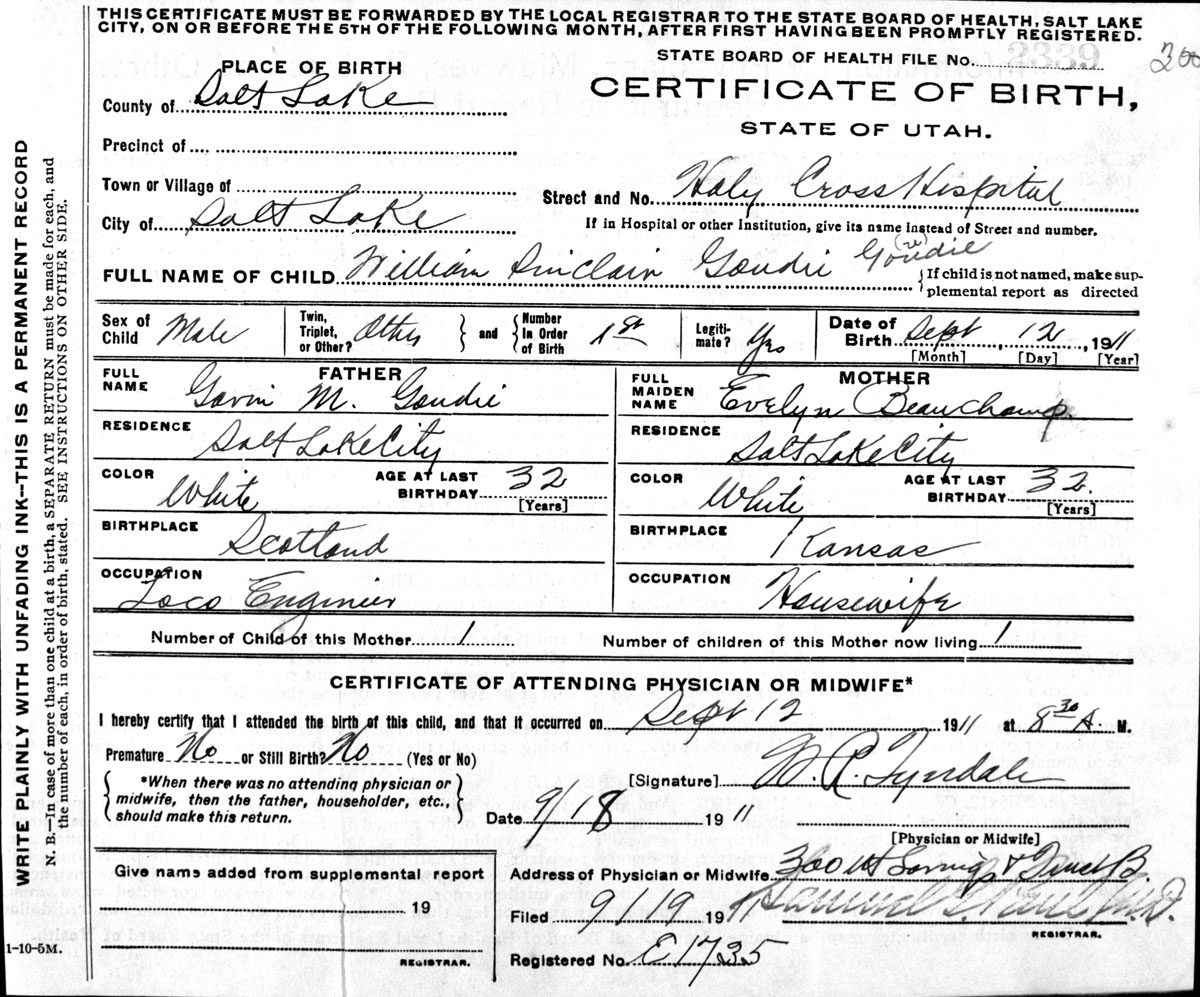 THIS CERTIFICATE MUST BE FORWARDED BY THE LOCAL REGISTRAR TO THE STATE BOARD OF HEALTH, SALT LAKE
CITY, ON OR BEFORE THE 5TH OF THE FOLLOWING MONTH, AFTER FIRST HAVING BEEN PROMPTLY REGISTERED.
STATE BOARD OF HEALTH FILE No.
PLACE OF BIRTH
CERTIFICATE OF BIRTH,
STATE OF UTAH.
County of Salt Lake
Precinct of
Town or Village of
Street and No. Holy Cross Hospital
City of Salt Lake
If in Hospital or other Institution, give its name instead of Street and number.
FULL NAME OF CHILD William Sinclair Goudie Goudie
If child is not named, make sup-
plemental report as directed
Sex of Child Male
Twin, Triplet, or Other? Other
and Number In Order of Birth 1st
Legiti-mate? Yes
Date of Birth Sept, 12, 1911
[Month] [Day] [Year]
FATHER
FULL NAME Gavin M. Goudie
RESIDENCE Salt Lake City
COLOR White AGE AT LAST BIRTHDAY 32 [Years]
BIRTHPLACE Scotland
OCCUPATION Loco Engineer
MOTHER
FULL MAIDEN NAME Evelyn Beauchamp
RESIDENCE Salt Lake City
COLOR White AGE AT LAST BIRTHDAY 32. [Years]
BIRTHPLACE Kansas
OCCUPATION Housewife
Number of Child of this Mother 1 Number of children of this Mother now living 1
CERTIFICATE OF ATTENDING PHYSICIAN OR MIDWIFE*
I hereby certify that I attended the birth of this child, and that it occurred on Sept 12 1911 at 8 30 A. M.
Premature No or Still Birth? No (Yes or No)
*When there was no attending physician or
midwife, then the father, householder, etc.,
should make this return.
[Signature] W. R. Tyndale
Date 9/18 1911
[Physician or Midwife]
Give name added from supplemental report
Address of Physician or Midwife
19
Filed 9/19 1911
REGISTRAR.
REGISTRAR.
Registered No. E 1735
1-10-5M.
WRITE PLAINLY WITH UNFADING INK—THIS IS A PERMANENT RECORD
N. B.—In case of more than one child at a birth, a SEPARATE RETURN must be made for each, and
the number of each, in order of birth, stated. SEE INSTRUCTIONS ON OTHER SIDE.